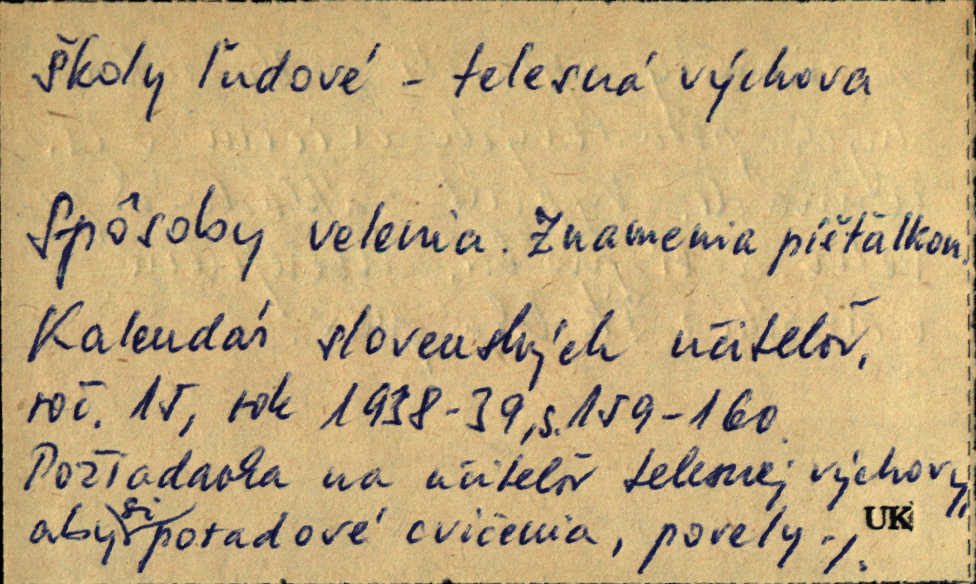 školy ľudové - telesná výchova
Spôsoby velenia. Znamenia píšťalkou.
Kalendár slovenských učiteľov,
roč. 15, rok 1938-39, s. 159-160.
Požiadavka na učiteľov telesnej výchovy,
aby si poradové cvičenia, povely -,
UK